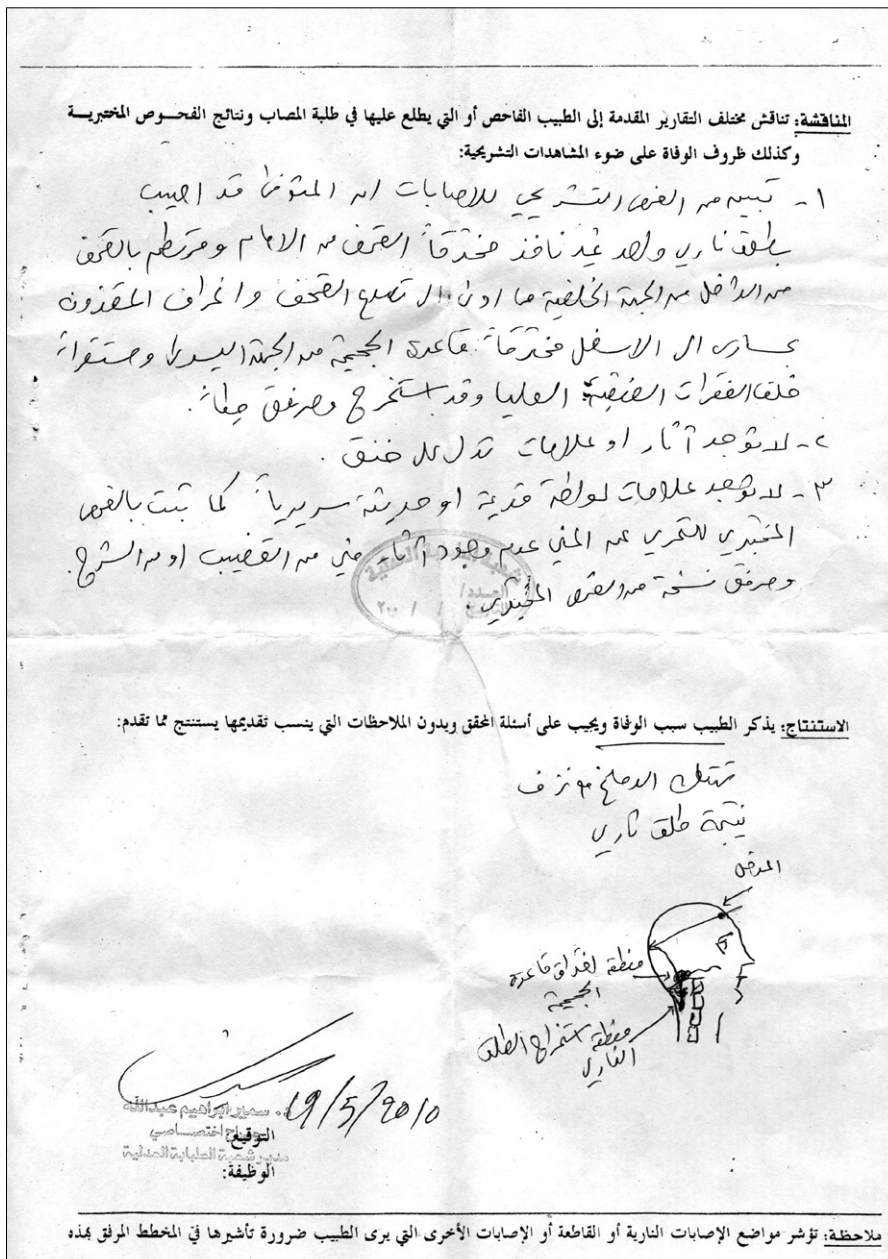 المناقشة: تناقش مختلف التقارير المقدمة إلى الطبيب الفاحص أو التي يطلع عليها في طلبة المصاب ونتائج الفحوص المختبرية
وكذلك ظروف الوفاة على ضوء المشاهدات التشريحية:
١- تبين من الفحص التشريحي للاصابات ان المتوفى قد اصيب
بطلق ناري واحد غير نافذ مخترقاً القحف من الامام ومرتطم بالقحف
من الداخل من الجهة الخلفية مما ادى الى تصدع القحف وانحراف المقذوف
الى الاسفل مخترقاً قاعدة الجمجمة من الجهة اليسرى ومستقراً
خلف الفقرات العنقية العليا وقد استخرج ومرفق
٢- لا توجد آثار او علامات تدل على خنق.
٣- لا توجد علامات لواطة قديمة او حديثة سريرياً كما ثبت بالفحص
المختبري للتحري عن المني عدم وجود آثار مني من القضيب او من الشرج.
ومرفق نسخة من الفحص المختبري.
العدد /
/ / ٢٠٠
الاستنتاج: يذكر الطبيب سبب الوفاة ويجيب على أسئلة المحقق ويدون الملاحظات التي ينسب تقديمها يستنتج مما تقدم:
تهتك الدماغ ونزف
نتيجة طلق ناري
المدخل
منطقة اختراق قاعدة
الجمجمة
منطقة استخراج الطلق
الناري
19/5/2010
د. سمير ابراهيم عبدالله
جراح اختصاصي
التوقيع
مدير شعبة الطبابة العدلية
الوظيفة:
ملاحظة: تؤشر مواضع الإصابات النارية أو القاطعة أو الإصابات الأخرى التي يرى الطبيب ضرورة تأشيرها في المخطط المرفق بهذه